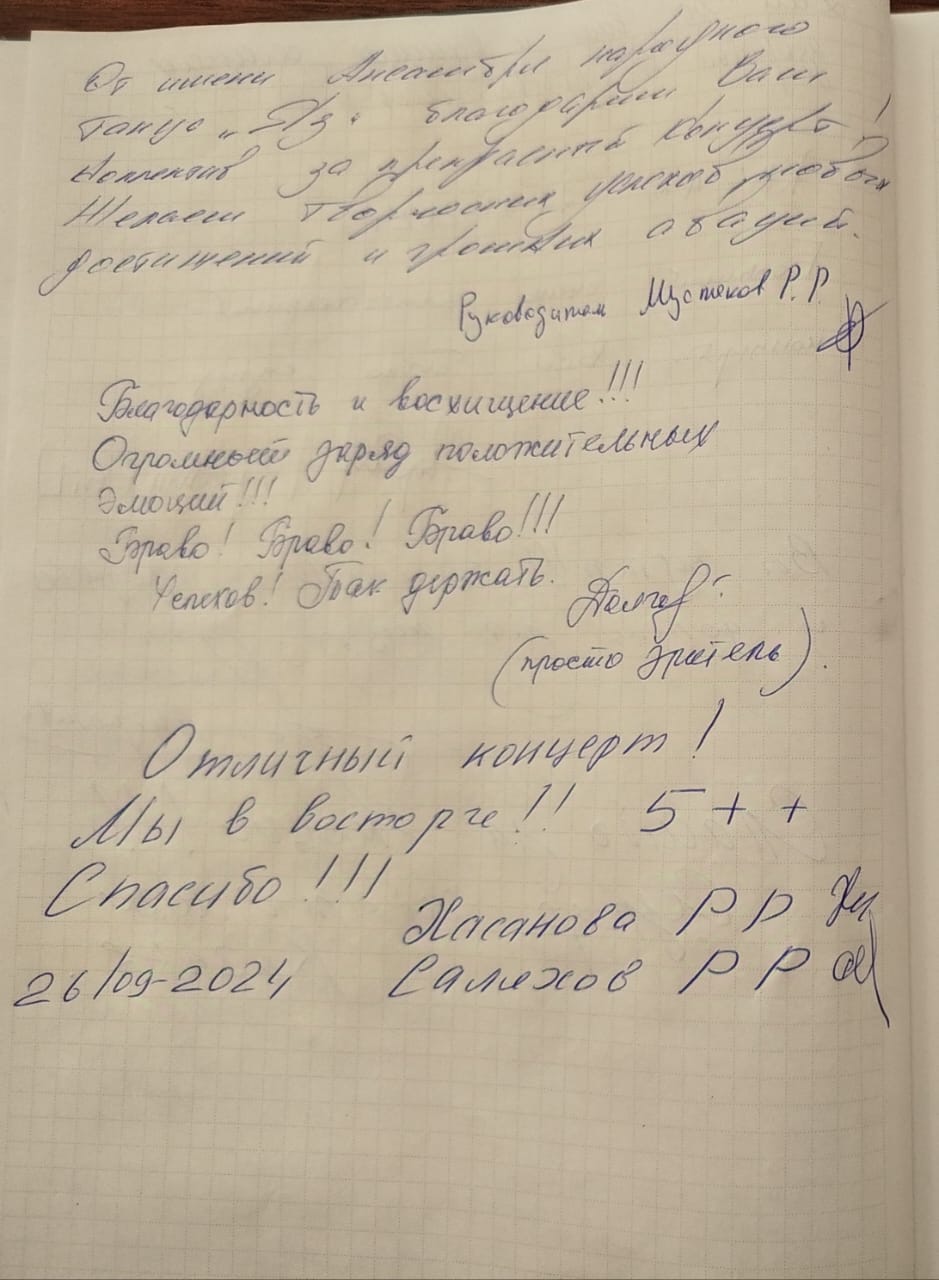 От имени Ансамбля народного
танца „Яз" благодарим Ваш
коллектив за прекрасный концерт!
Желаем творческих успехов, новых
достижений и громких оваций.
Руководитель Мустаков Р.Р.
Благодарность и восхищение!!!
Огромный заряд положительных
эмоций!!!
Браво! Браво! Браво!!!
Успехов! Так держать.
(просто зритель).
Отличный концерт!
Мы в восторге!! 5++
Спасибо!!!
Хасанова Р Р
26/09-2024 Саляхов Р Р